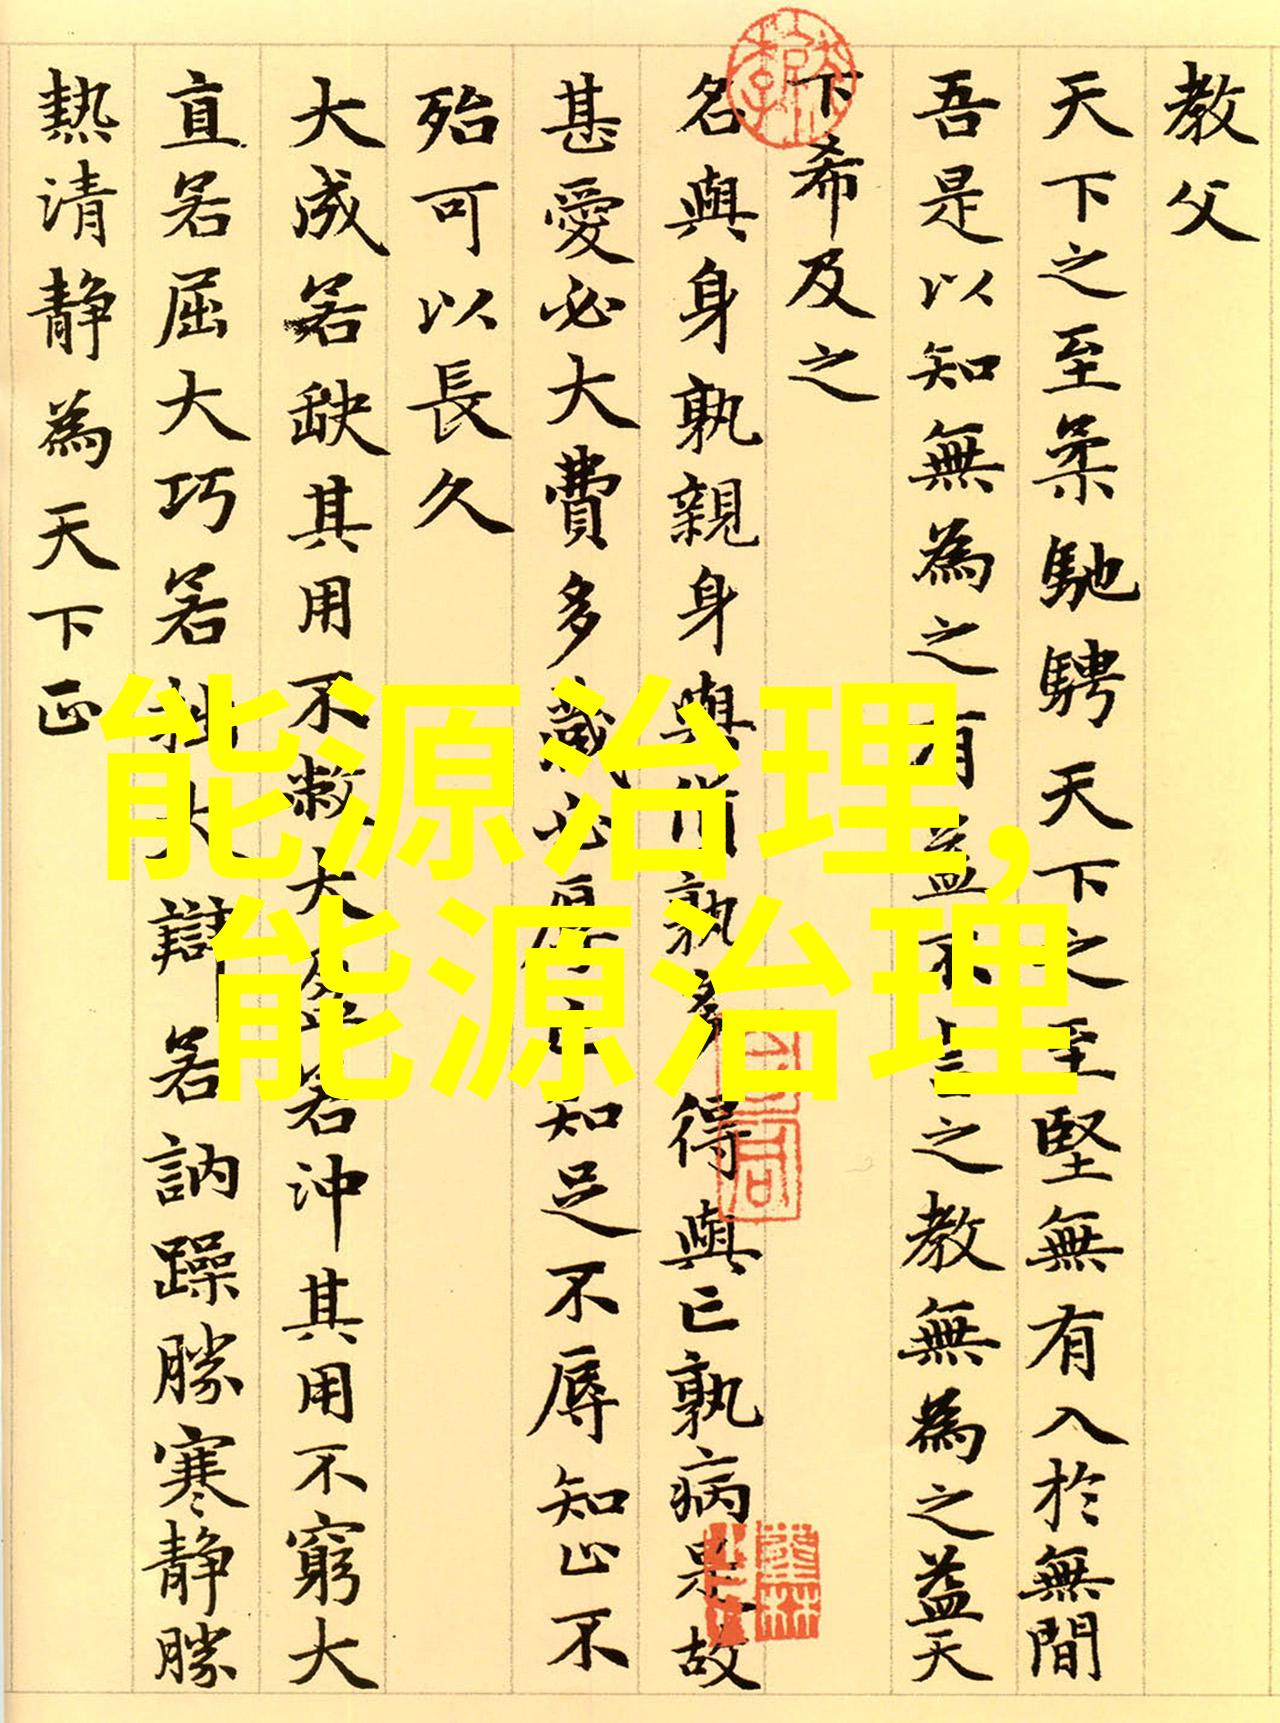 教父
天下之至柔馳騁天下之至堅無有入於無間
吾是以知無為之有益不言之教無為之益天
下希及之
名與身孰親身與貨孰多得與亡孰病是故
甚愛必大費多藏必厚亡知足不辱知止不
殆可以長久
大成若缺其用不敝大盈若沖其用不窮大
直若屈大巧若拙大辯若訥躁勝寒靜勝
熱清靜為天下正
能源治理,
能源治理